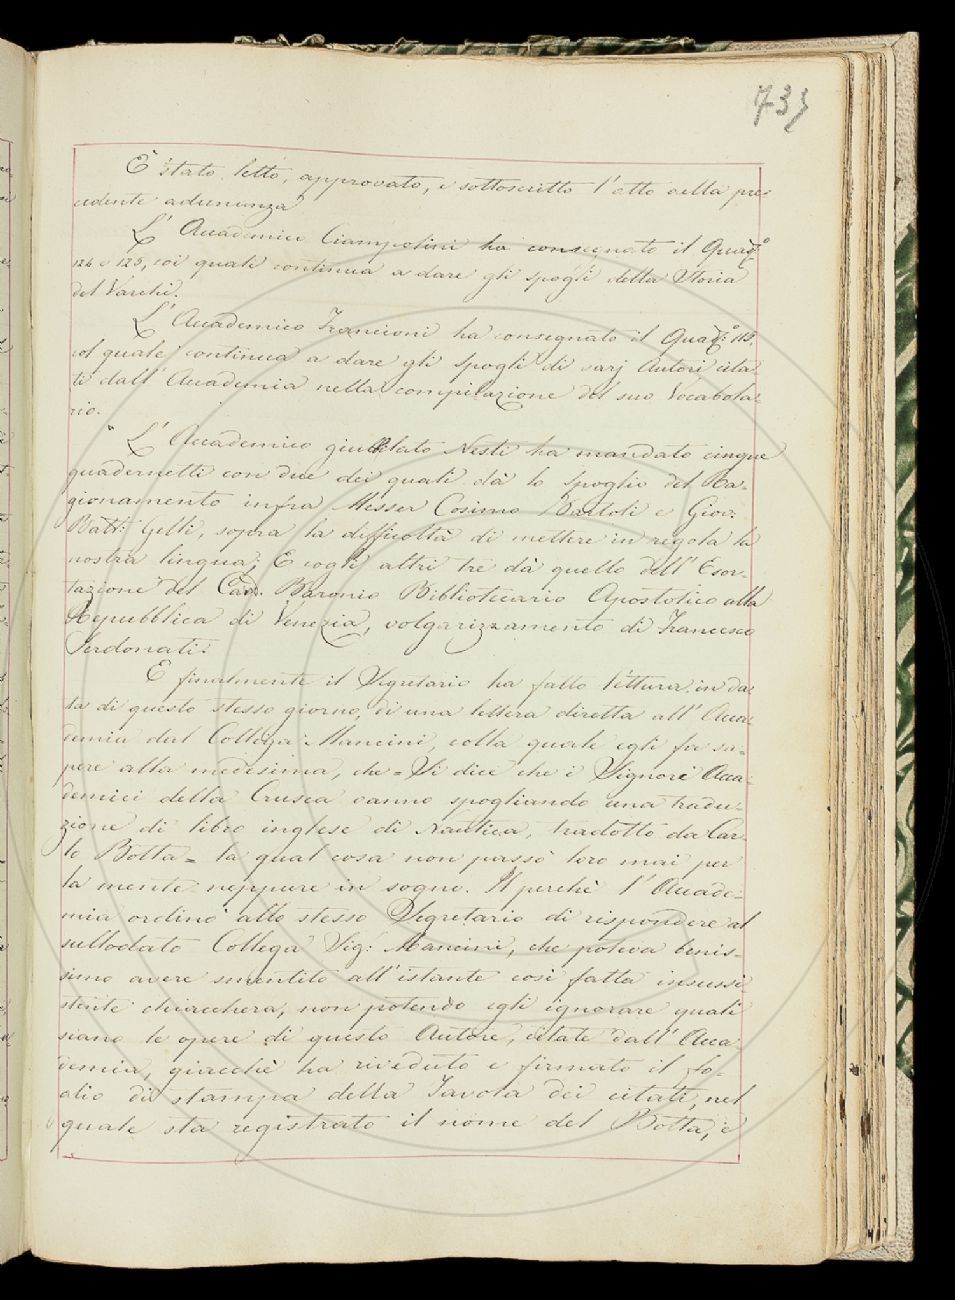 733
E' stato letto, approvato, e sottoscritto l'atto della pre-
cedente adunanza
L'Accademico Ciampolini ha consegnato il Quad.°
124 e 125, coi quali continua a dare gli spogli della Storia
del Varchi.
L'Accademico Francioni ha consegnato il Quad.° 113.
col quale continua a dare gli spogli di varj Autori cita-
ti dall'Accademia nella compilazione del suo Vocabola-
rio.
L'Accademico giubbilato Nesti ha mandato cinque
quadernetti con due dei quali dà lo spoglio del Ra-
gionamento infra Messer Cosimo Bartoli e Giov:
Batt: Gelli, sopra la difficoltà di mettere in regola la
nostra lingua; E cogli altri tre dà quello dell'Esor-
tazione del Card. Baronio Bibliotecario Apostolico alla
Repubblica di Venezia, volgarizzamento di Francesco
Serdonati.
E finalmente il Segretario ha fatto lettura, in da-
ta di questo stesso giorno, di una lettera diretta all'Acca-
demia dal Collega Mancini, colla quale egli fa sa-
pere alla medesima, che = Si dice che i Signori Acca-
demici della Crusca vanno spogliando una tradu-
zione di libro inglese di Nautica, tradotto da Car-
lo Botta = la qual cosa non passò loro mai per
la mente neppure in sogno. Il perchè l'Accade-
mia ordinò allo stesso Segretario di rispondere al
sullodato Collega Sig: Mancini, che poteva benis-
simo avere smentito all'istante così fatta insussi-
stente chiacchera, non potendo egli ignorare quali
siano le opere di questo Autore, citate dall'Acca-
demia, giacchè ha riveduto e firmato il fo-
glio di stampa della Tavola dei citati, nel
quale sta registrato il nome del Botta, e